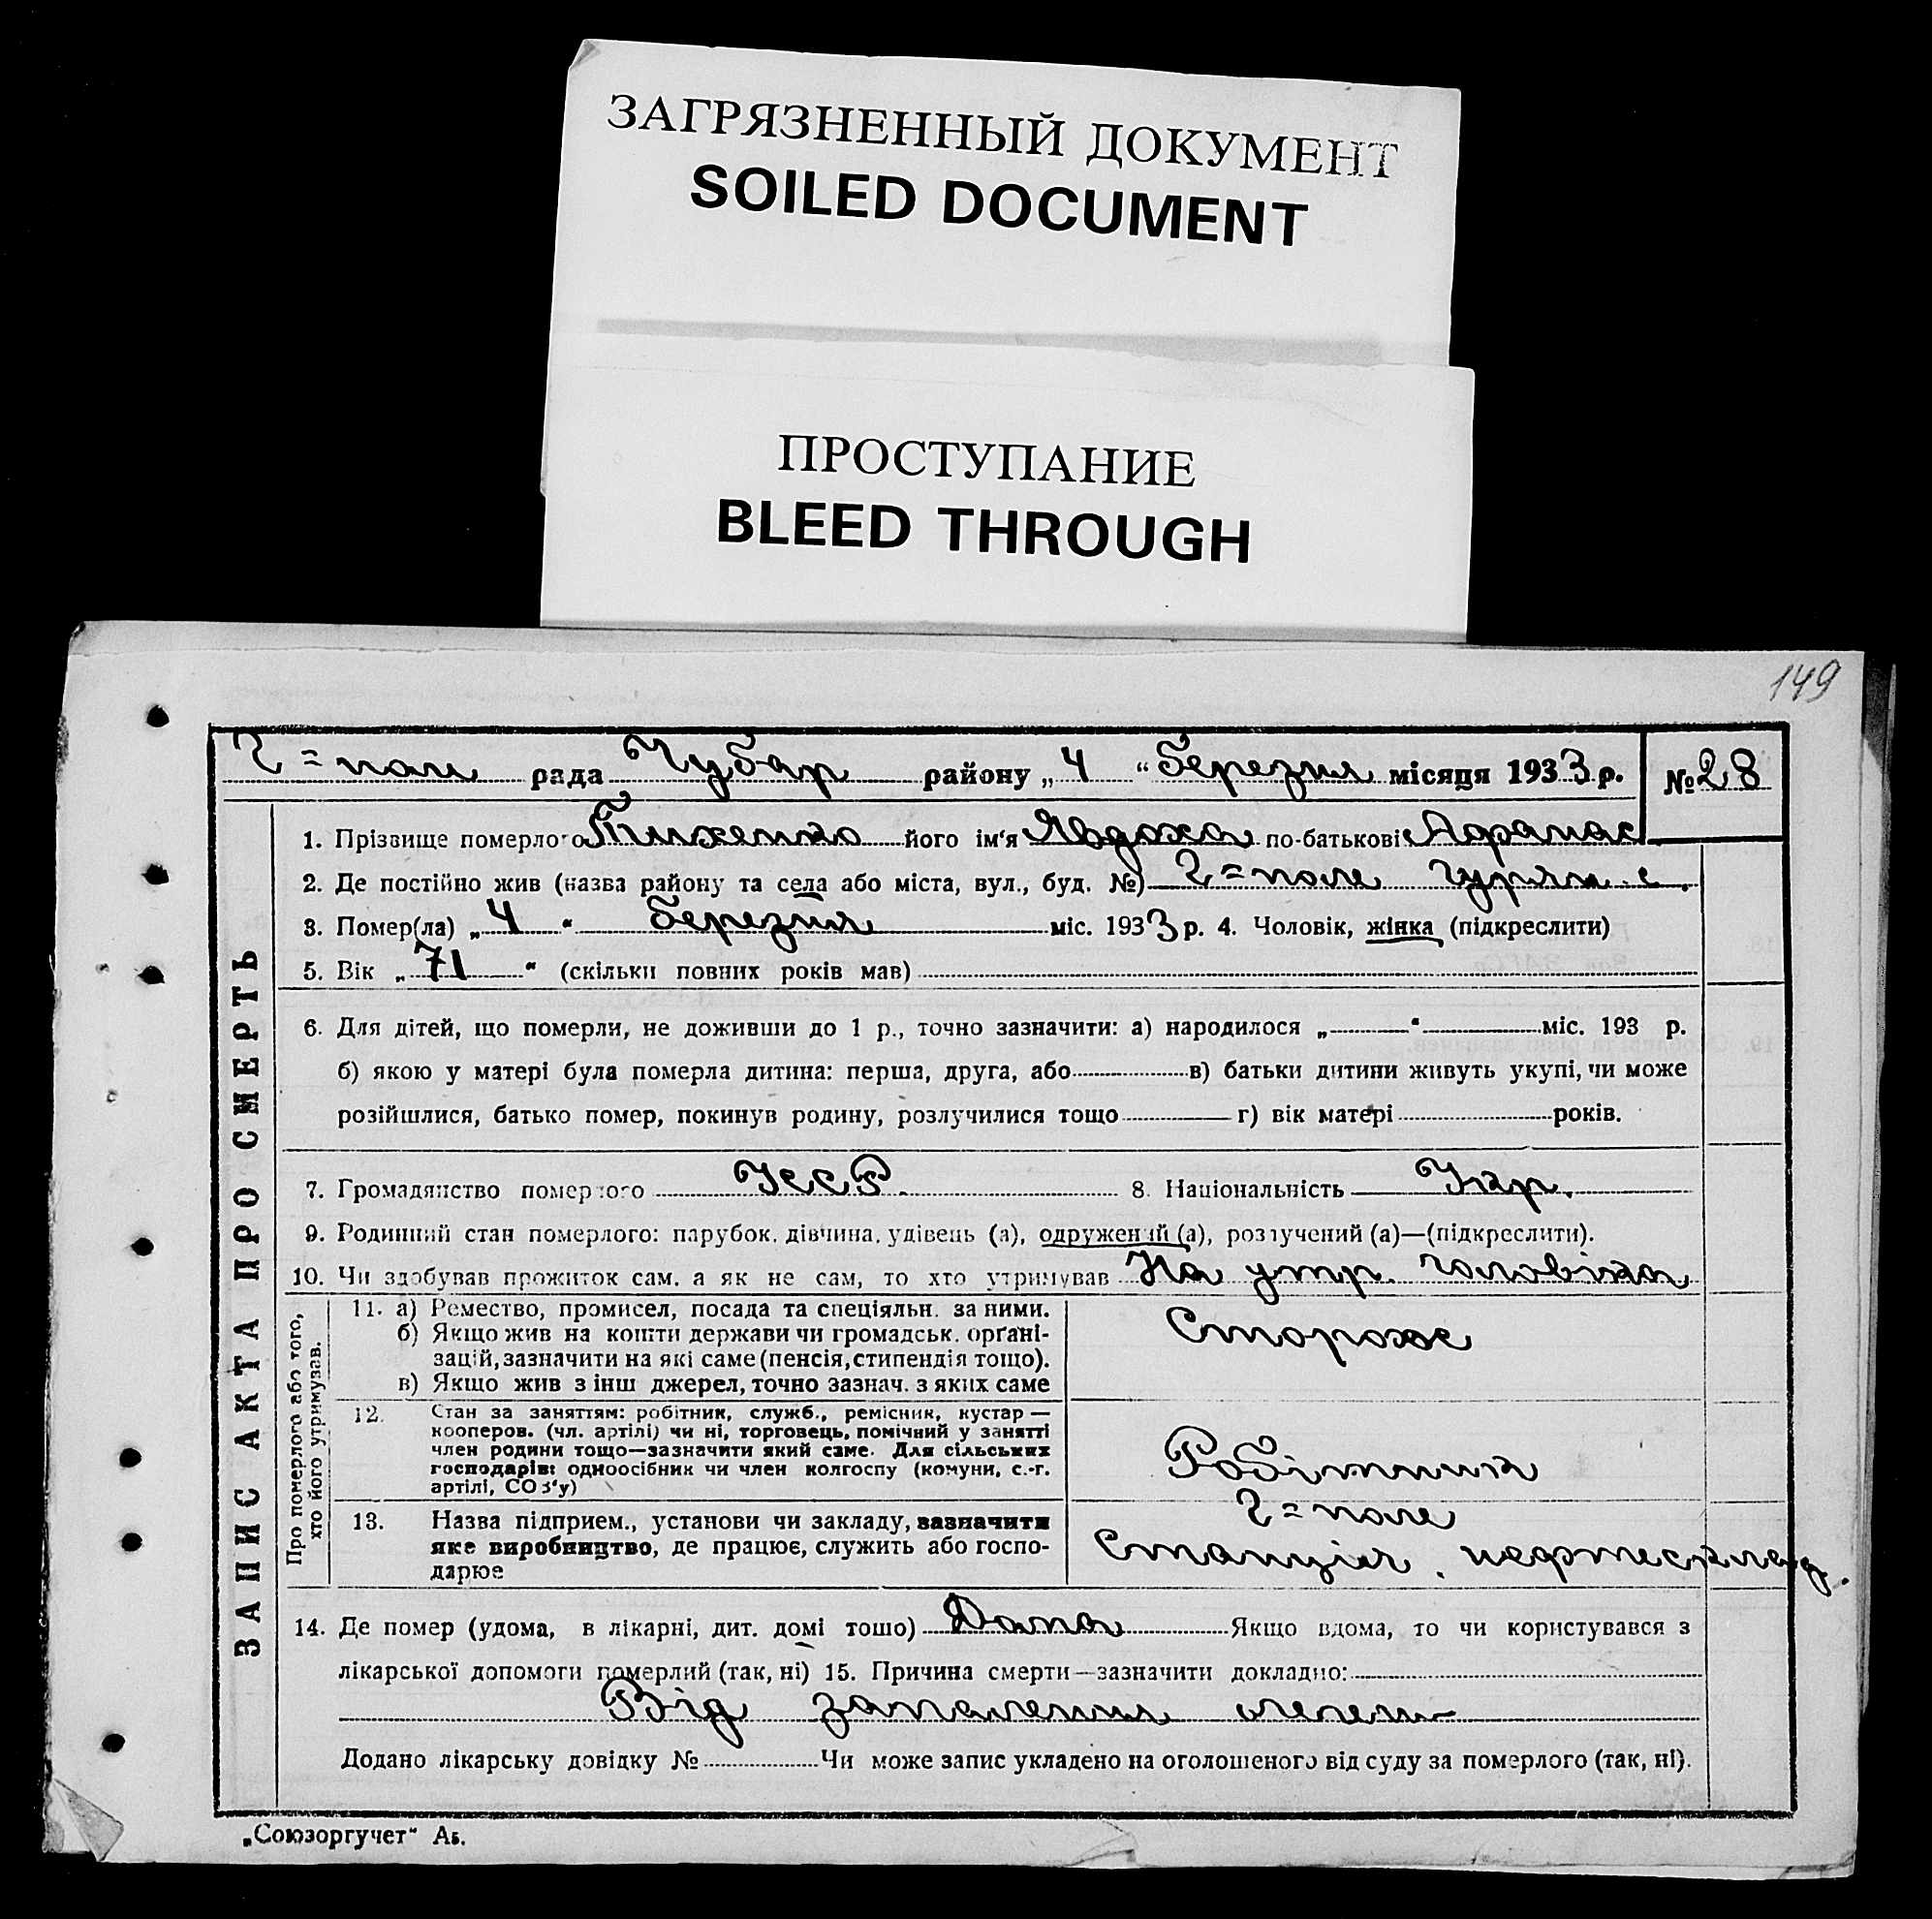 ЗАГРЯЗНЕННЫЙ ДОКУМЕНТ
SOILED DOCUMENT
ПРОСТУПАНИЕ
BLEED THROUGH
149
Г=поли рада Чубар району „4“ березня місяця 1933 р. № 28
ЗАПИС АКТА ПРО СМЕРТЬ
1. Прізвище померлого Тихенко його ім'я Явдоха по-батькові Афанас
2. Де постійно жив (назва району та села або міста, вул., буд. №) Г=поле
3. Помер(ла) „4“ березня міс. 1933 р. 4. Чоловік, жінка (підкреслити)
5. Вік „71“ (скільки повних років мав)
6. Для дітей, що померли, не доживши до 1 р., точно зазначити: а) народилося „ “ міс. 193 р.
б) якою у матері була померла дитина: перша, друга, або в) батьки дитини живуть укупі, чи може
розійшлися, батько помер, покинув родину, розлучилися тощо г) вік матері років.
7. Громадянство померлого УССР. 8. Національність Укр.
9. Родинний стан померлого: парубок, дівчина, удівець (а), одружений (а), розлучений (а)—(підкреслити).
10. Чи здобував прожиток сам, а як не сам, то хто утримував На утр. чоловіка
Про померлого або того,
хто його утримував.
11. а) Ремество, промисел, посада та спеціяльн. за ними.
б) Якщо жив на кошти держави чи громадськ. органі-
зацій, зазначити на які саме (пенсія, стипендія тощо).
в) Якщо жив з інш джерел, точно зазнач. з яких саме
Сторож
12. Стан за заняттям: робітник, служб., ремісник, кустар —
кооперов. (чл. артілі) чи ні, торговець, помічний у занятті
член родини тощо—зазначити який саме. Для сільських
господарів: одноосібник чи член колгоспу (комуни, с.-г.
артілі, СОЗ'у)
Робітник
13. Назва підприєм., установи чи закладу, зазначити
яке виробництво, де працює, служить або госпо-
дарює
Г=поле
Станція. нафтосклад.
14. Де помер (удома, в лікарні, дит. домі тощо) Дома Якщо вдома, то чи користувався з
лікарської допомоги померлий (так, ні) 15. Причина смерти—зазначити докладно:
Від запалення легень
Додано лікарську довідку № Чи може запис укладено на оголошеного від суду за померлого (так, ні).
„Союзоргучет“ Аб.